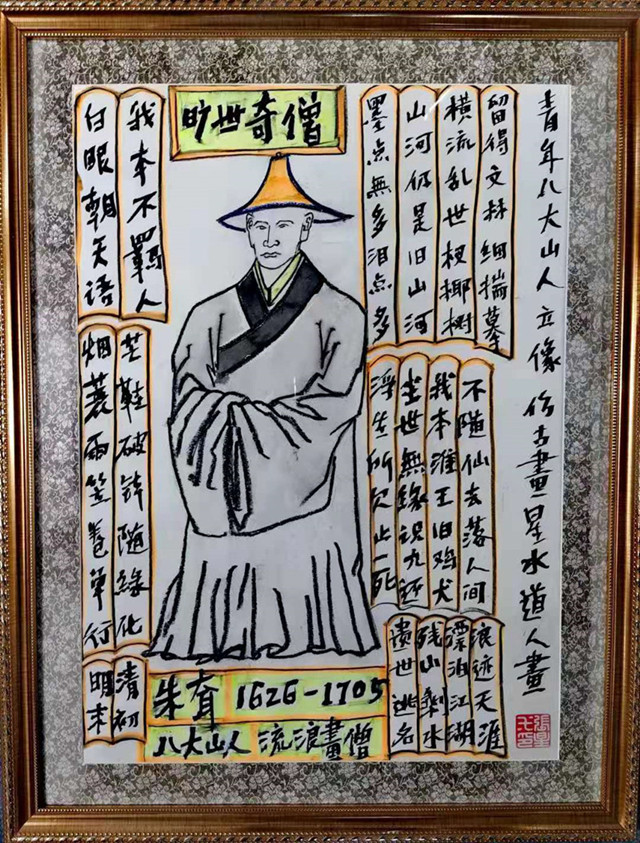 旷世奇僧
青年八大山人立像仿古畫星水道人畫
墨点無多泪点多
山河仍是旧山河
横流乱世梗椰树
留得文林细揣摹
浮生所欠止一死
尘世無緣识九还
我本淮王旧鸡犬
不随仙去落人间
遗世逃名
残山剩水
漂泊江湖
浪迹天涯
白眼朝天语
我本不羁人
烟蓑雨笠卷单行
芒鞋破钵随緣化
明末
清初
朱耷 1626-1705
八大山人 流浪畫僧